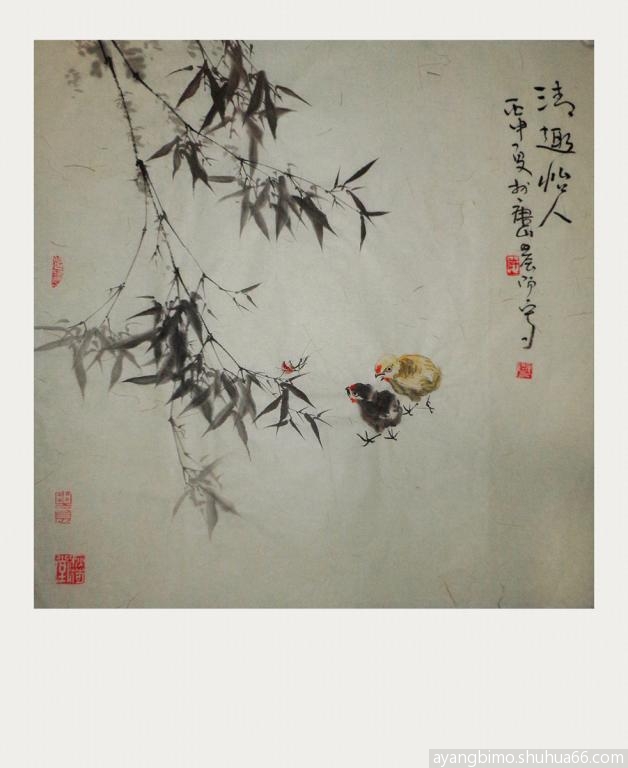 清趣怡人
丙申夏于唐山晨阳写
ayangbimo.shuhua66.com